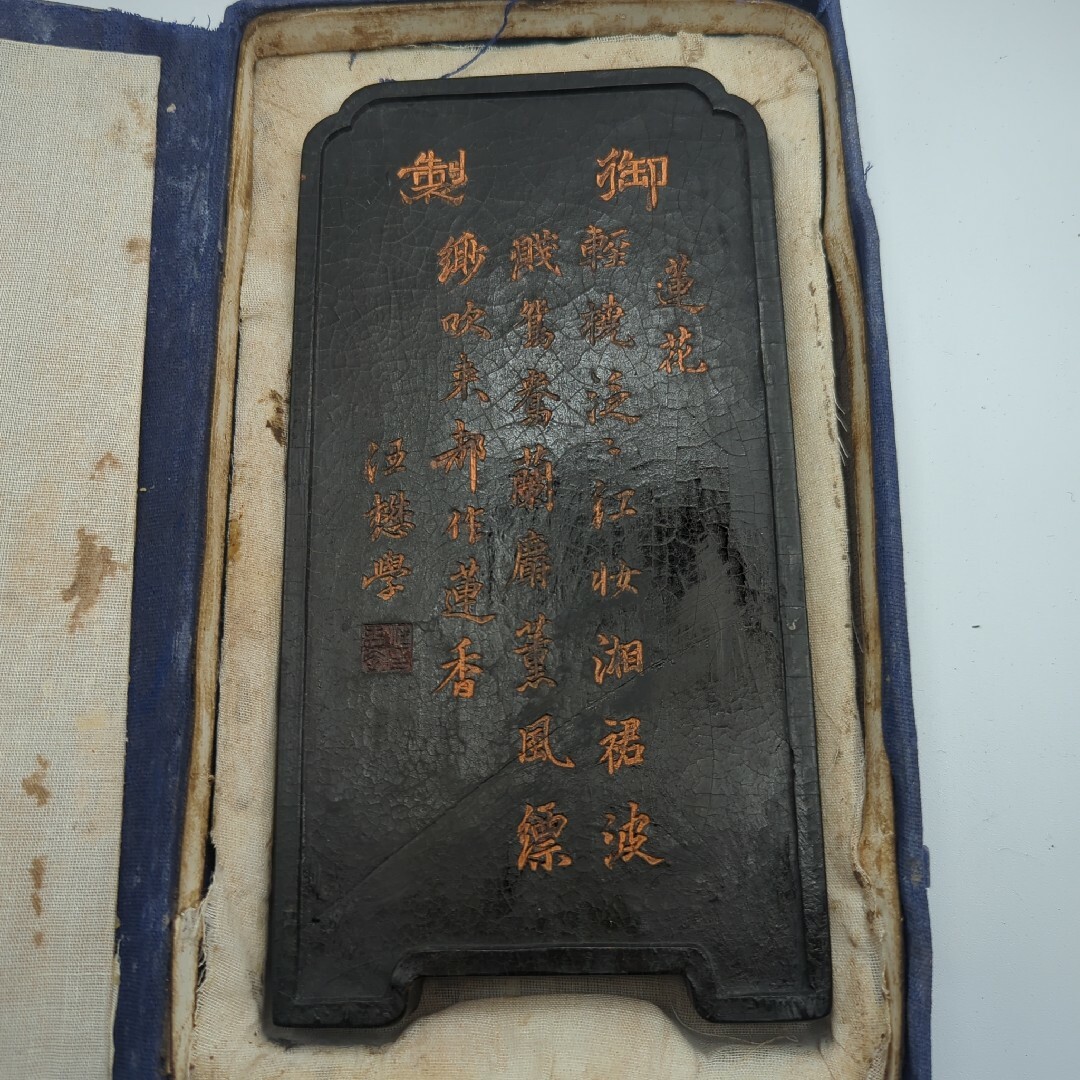 御製
蓮花
輕橈泛〻江妝湘裙波
賤鴛鴦蘭麝薰風縹
緲吹来郝作蓮香
汪懋學